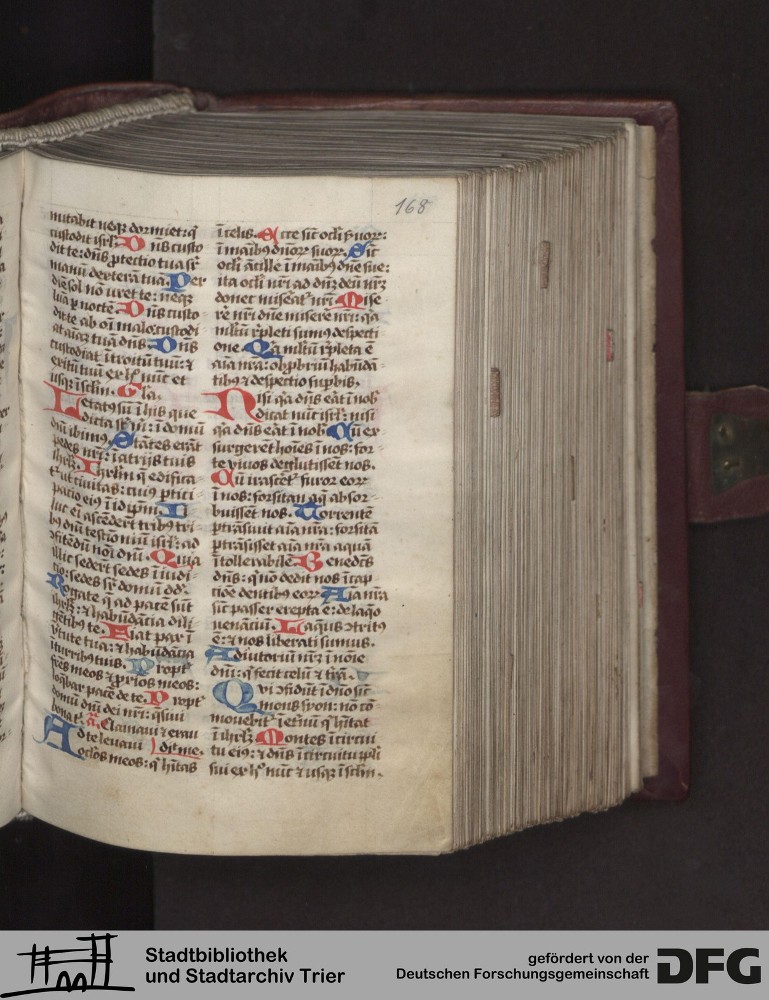 168
mitabit neqz dormiet: q̇
custodit isrł. Dn̄s custo
dit te: dn̄s ꝓtectio tua sr̄
manū dexterā tuā. Per
diē sol nō uret te: neqz
luā ꝑ noctē. Dn̄s custo
dit te ab oī malo: custodi
at aīaꝫ tuā dn̄s. Dn̄s
custodiat ītroitū tuū: ⁊
exitū tuū ex hͦ nūc et
usqz ī sclm̄. Gla.
Letatꝰ sū ī his que
dicta st̄ m̄: ī domū
dn̄i ibimꝰ. Stātes erāt
pedes nr̄i: ī atrijs tuis
ihrłꝫ. Ihrłm̄ q̄ edifica
tᷣ ut ciuitas: cuiꝰ ꝑtici
patio eiꝰ ī idip̄m̄. Il
luc ei ascēdert̄ tribꝰ tri
bꝰ dn̄i testīoniū isrł: ad
ꝯfitēdū noī dn̄i. Quia
illic sedert̄ sedes ī iudi
cio: sedes sr̄ domū dd̄.
Rogate q̄ ad pacē sūt
ihrłꝫ: ⁊ habūdācia dili
gētibꝰ te. Fiat pax ī
ꝟtute tua: ⁊ habūdācia
ī turribꝰ tuis. Propt̄
frēs meos ⁊ ꝓxīos meos:
loq̄bar pacē de te. Propt̄
domū dn̄i dei nr̄i: q̄siui
bona tᷣ. a. Clamaui ⁊ exau
Ad te leuaui diuit me.
oclōs meos: q̇ hītas
ī celis. Ecce sic̄ oclī ẜuorꝫ:
ī maībꝰ dn̄orꝫ suorꝫ. Sic̄
oclī ācille ī maībꝰ dn̄e sue:
ita oclī nr̄i ad dn̄ꝫ deū nr̄ꝫ
donec miseāᷣ nr̄i. Mise
rē nr̄i dn̄e miserē nr̄i: q̇a
mltū rꝑleti sumꝰ despecti
one. Q̇a mltū rꝑleta ē
aīa nr̄a: obꝑbriū habūdā
tibꝰ ⁊ despectio suꝑbis.
Nisi q̇a dn̄s eāt ī nob̄
dicat nūc isrł: nisi
q̇a dn̄s eāt ī nob̄. Cū ex
surgerēt hoīes ī nos: for
te viuos deglutissēt nos.
Cū irascētᷣ furor eorꝫ
ī nos: forsitan aq̄ absor
buisset nos. Torrentē
ꝑtrāsiuit aīa nr̄a: forsitā
ꝑtrāsisset aīa nr̄a aquā
ītollerabilē. Benedct̄s
dn̄s: q̇ nō dedit nos ī cap
tiōē dentibꝰ eorꝫ. Aīa nr̄a
sic̄ passer erepta ē: de laq̄o
uenāciū. Laqꝰ ꝯtritꝰ
ē: ⁊ nos liberati sumus.
Adiutoriū nr̄ꝫ ī noīe
dn̄i: q̇ fecit celū ⁊ tr̄ā.
Qvi ꝯfidūt ī dn̄o sic̄
mons syon: nō cō
mouebitᷣ ī et̄nū q̇ hītat
ī ihrłꝫ. Montes ī circui
tu eiꝰ: ⁊ dn̄s ī circuitu ppłi
sui ex hͦ nūc ⁊ usqz ī sclm̄.
Stadtbibliothek
und Stadtarchiv Trier
gefördert von der
Deutschen Forschungsgemeinschaft
DFG